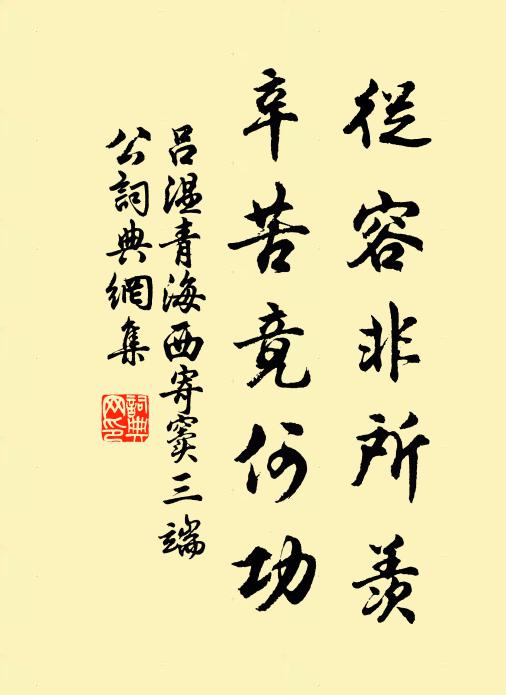 從容非所羨
辛苦竟何功
呂溫青海西寄竇三端
公詞典網集
詞典网印